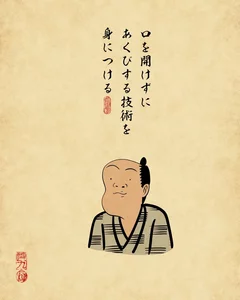 口を開けずに
あくびする技術を
身につける